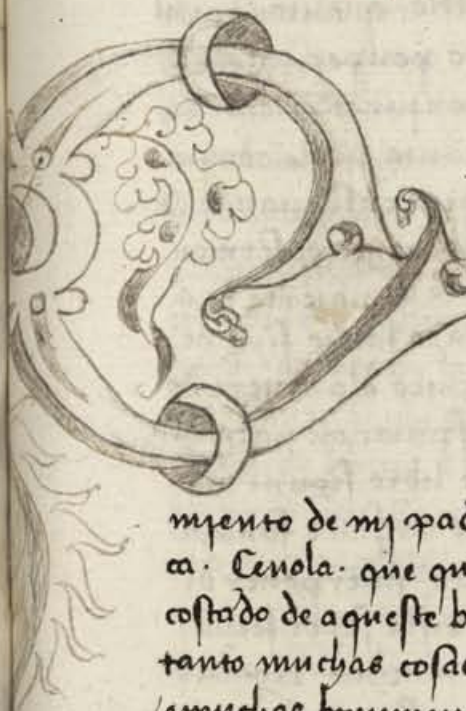 mjento de mj pad
ca · Cenola · que qu
costado de aqueste b
tanto muchas cosas